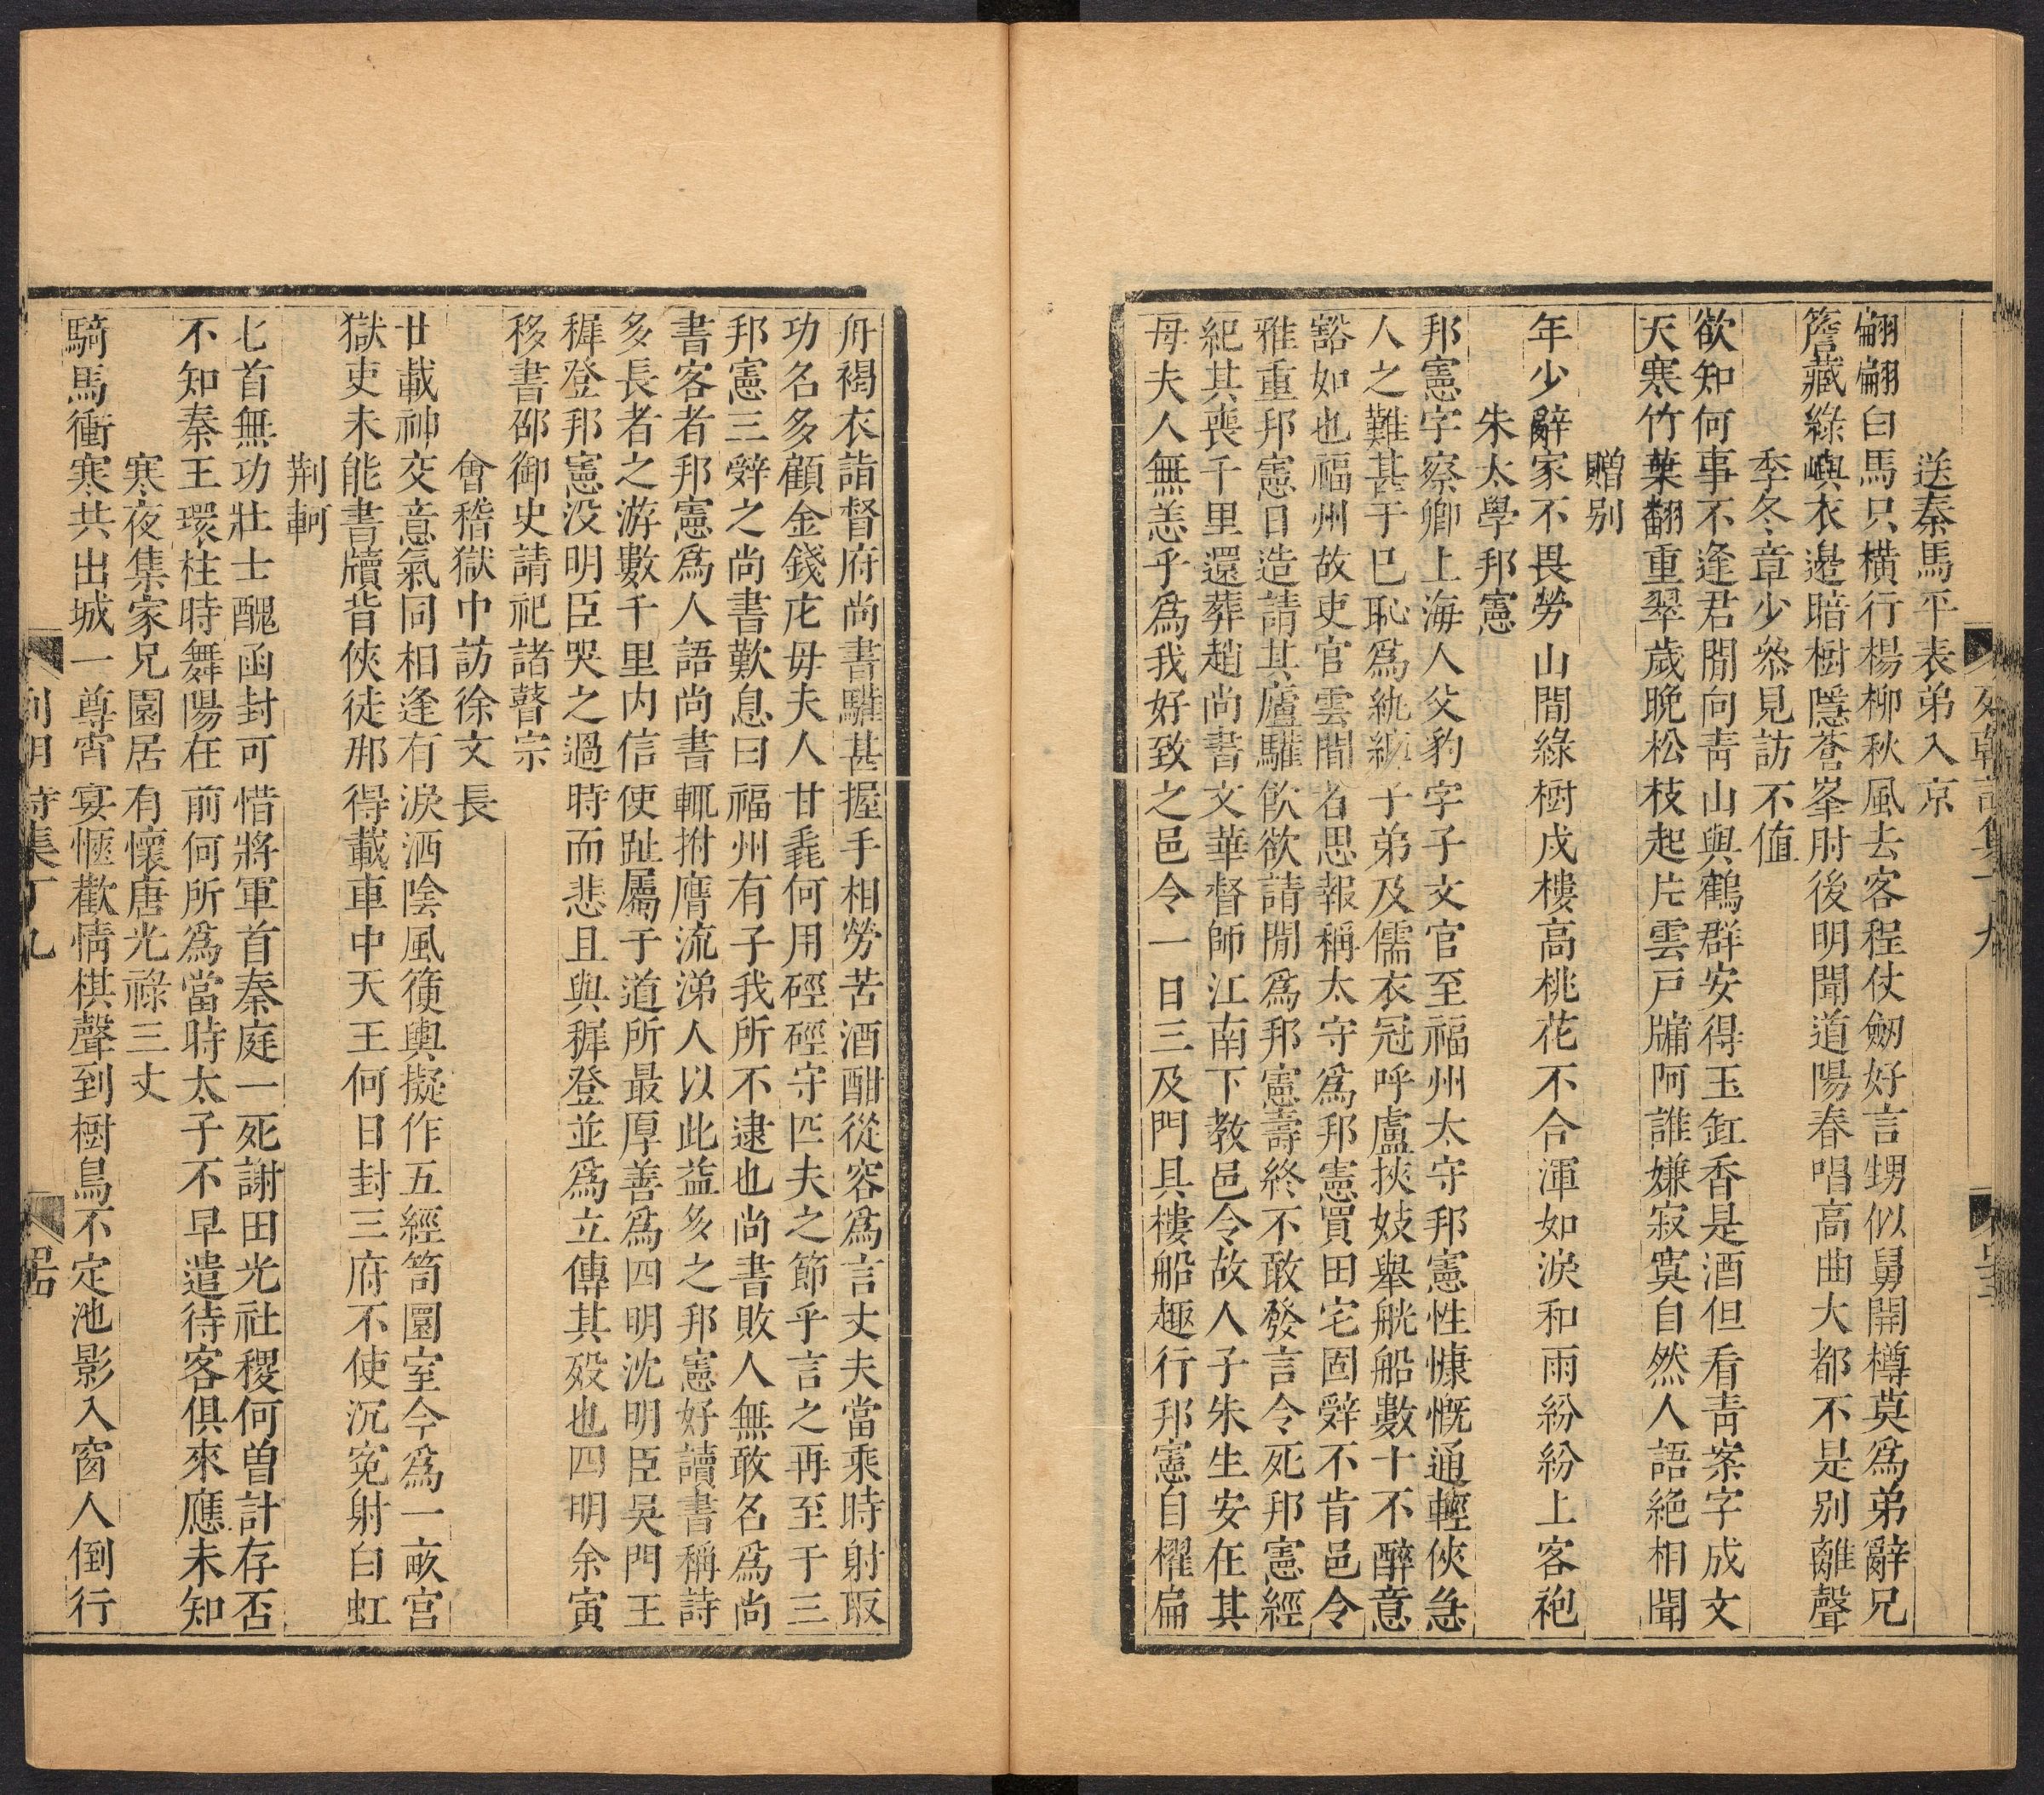 送秦馬平表弟入京
翩翩白馬只橫行楊柳秋風去客程仗劒好言甥似舅開樽莫爲弟辭兄
簷藏綠嶼衣邊暗樹隱蒼峯肘後明聞道陽春唱高曲大都不是别離聲
季冬章少叅見訪不值
欲知何事不逢君閒向靑山與鶴群安得玉缸香是酒但看靑案字成文
天寒竹葉翻重翠歲晚松枝起片雲戸牖阿誰嫌寂寞自然人語絶相聞
贈别
年少辭家不畏勞山間綠樹戍樓高桃花不合渾如淚和雨紛紛上客袍
朱太學邦憲
邦憲字察卿上海人父豹字子文官至福州太守邦憲性慷慨通輕俠急
人之難甚于已恥爲紈綺子弟及儒衣冠呼盧挾妓舉觥船數十不醉意
豁如也福州故吏官雲間者思報稱太守爲邦憲買田宅固辤不肯邑令
雅重邦憲日造請其廬驩飮欲請閒爲邦憲壽終不敢發言令死邦憲經
紀其喪千里還葬趙尚書文華督師江南下教邑令故人子朱生安在其
母夫人無恙乎爲我好致之邑令一日三及門具樓船趣行邦憲自櫂扁
舟褐衣詣督府尚書驩甚握手相勞苦酒酣從容爲言丈夫當乘時射取
功名多顧金錢庀毋夫人甘毳何用硜硜守匹夫之節乎言之再至于三
邦憲三辤之尚書歎息曰福州有子我所不逮也尚書敗人無敢名爲尚
書客者邦憲爲人語尚書輒拊膺流涕人以此益多之邦憲好讀書稱詩
多長者之游數千里内信使趾屬于道所最厚善爲四明沈明臣吳門王
穉登邦憲没明臣哭之過時而悲且與穉登並爲立傳其歿也四明余寅
移書邵御史請祀諸瞽宗
會稽獄中訪徐文長
廿載神交意氣同相逢有淚洒陰風箯輿擬作五經笥圜室今爲一畝宫
獄吏未能書牘背俠徒那得載車中天王何日封三府不使沉寃射白虹
荆軻
匕首無功壯士醜函封可惜將軍首秦庭一死謝田光社稷何曽計存否
不知秦王環柱時舞陽在前何所爲當時太子不早遣待客俱來應未知
寒夜集家兄園居有懷唐光祿三丈
騎馬衝寒共出城一尊宵宴愜歡情棋聲到樹鳥不定池影入窗人倒行